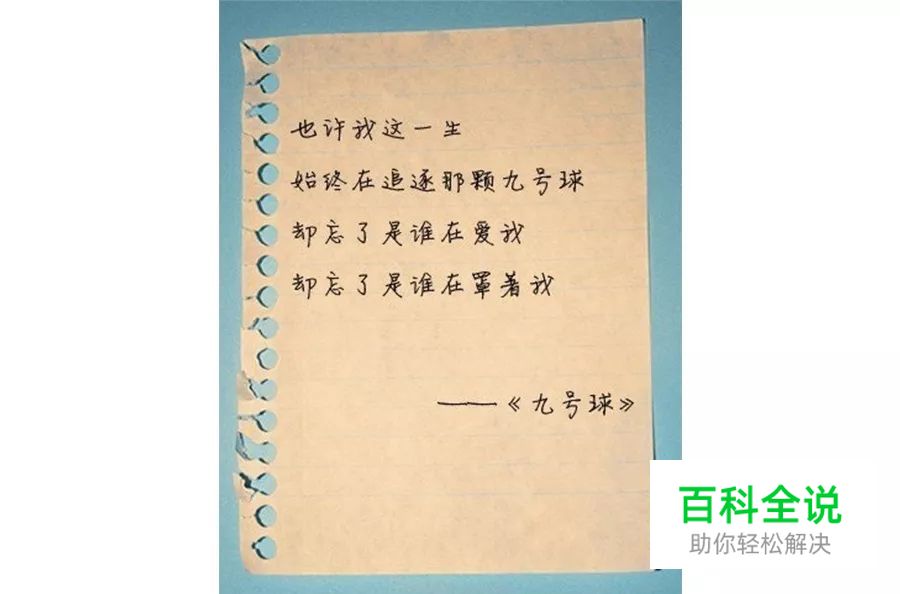 也许我这一生
始终在追逐那颗九号球
却忘了是谁在爱我
却忘了是谁在罩著我
——《九号球》
百科全说
助你轻松解决